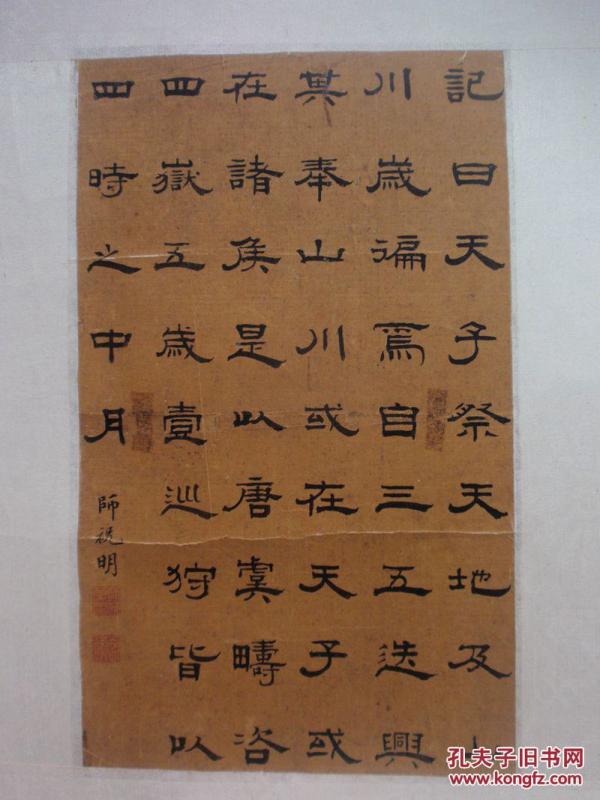 記曰天子祭天地及山
川歲徧焉自三五迭興
其奉山川或在天子或
在諸侯是以唐虞疇咨
四嶽五歲壹巡狩皆以
四時之中月
師說明
孔夫子旧书网
www.kongfz.com